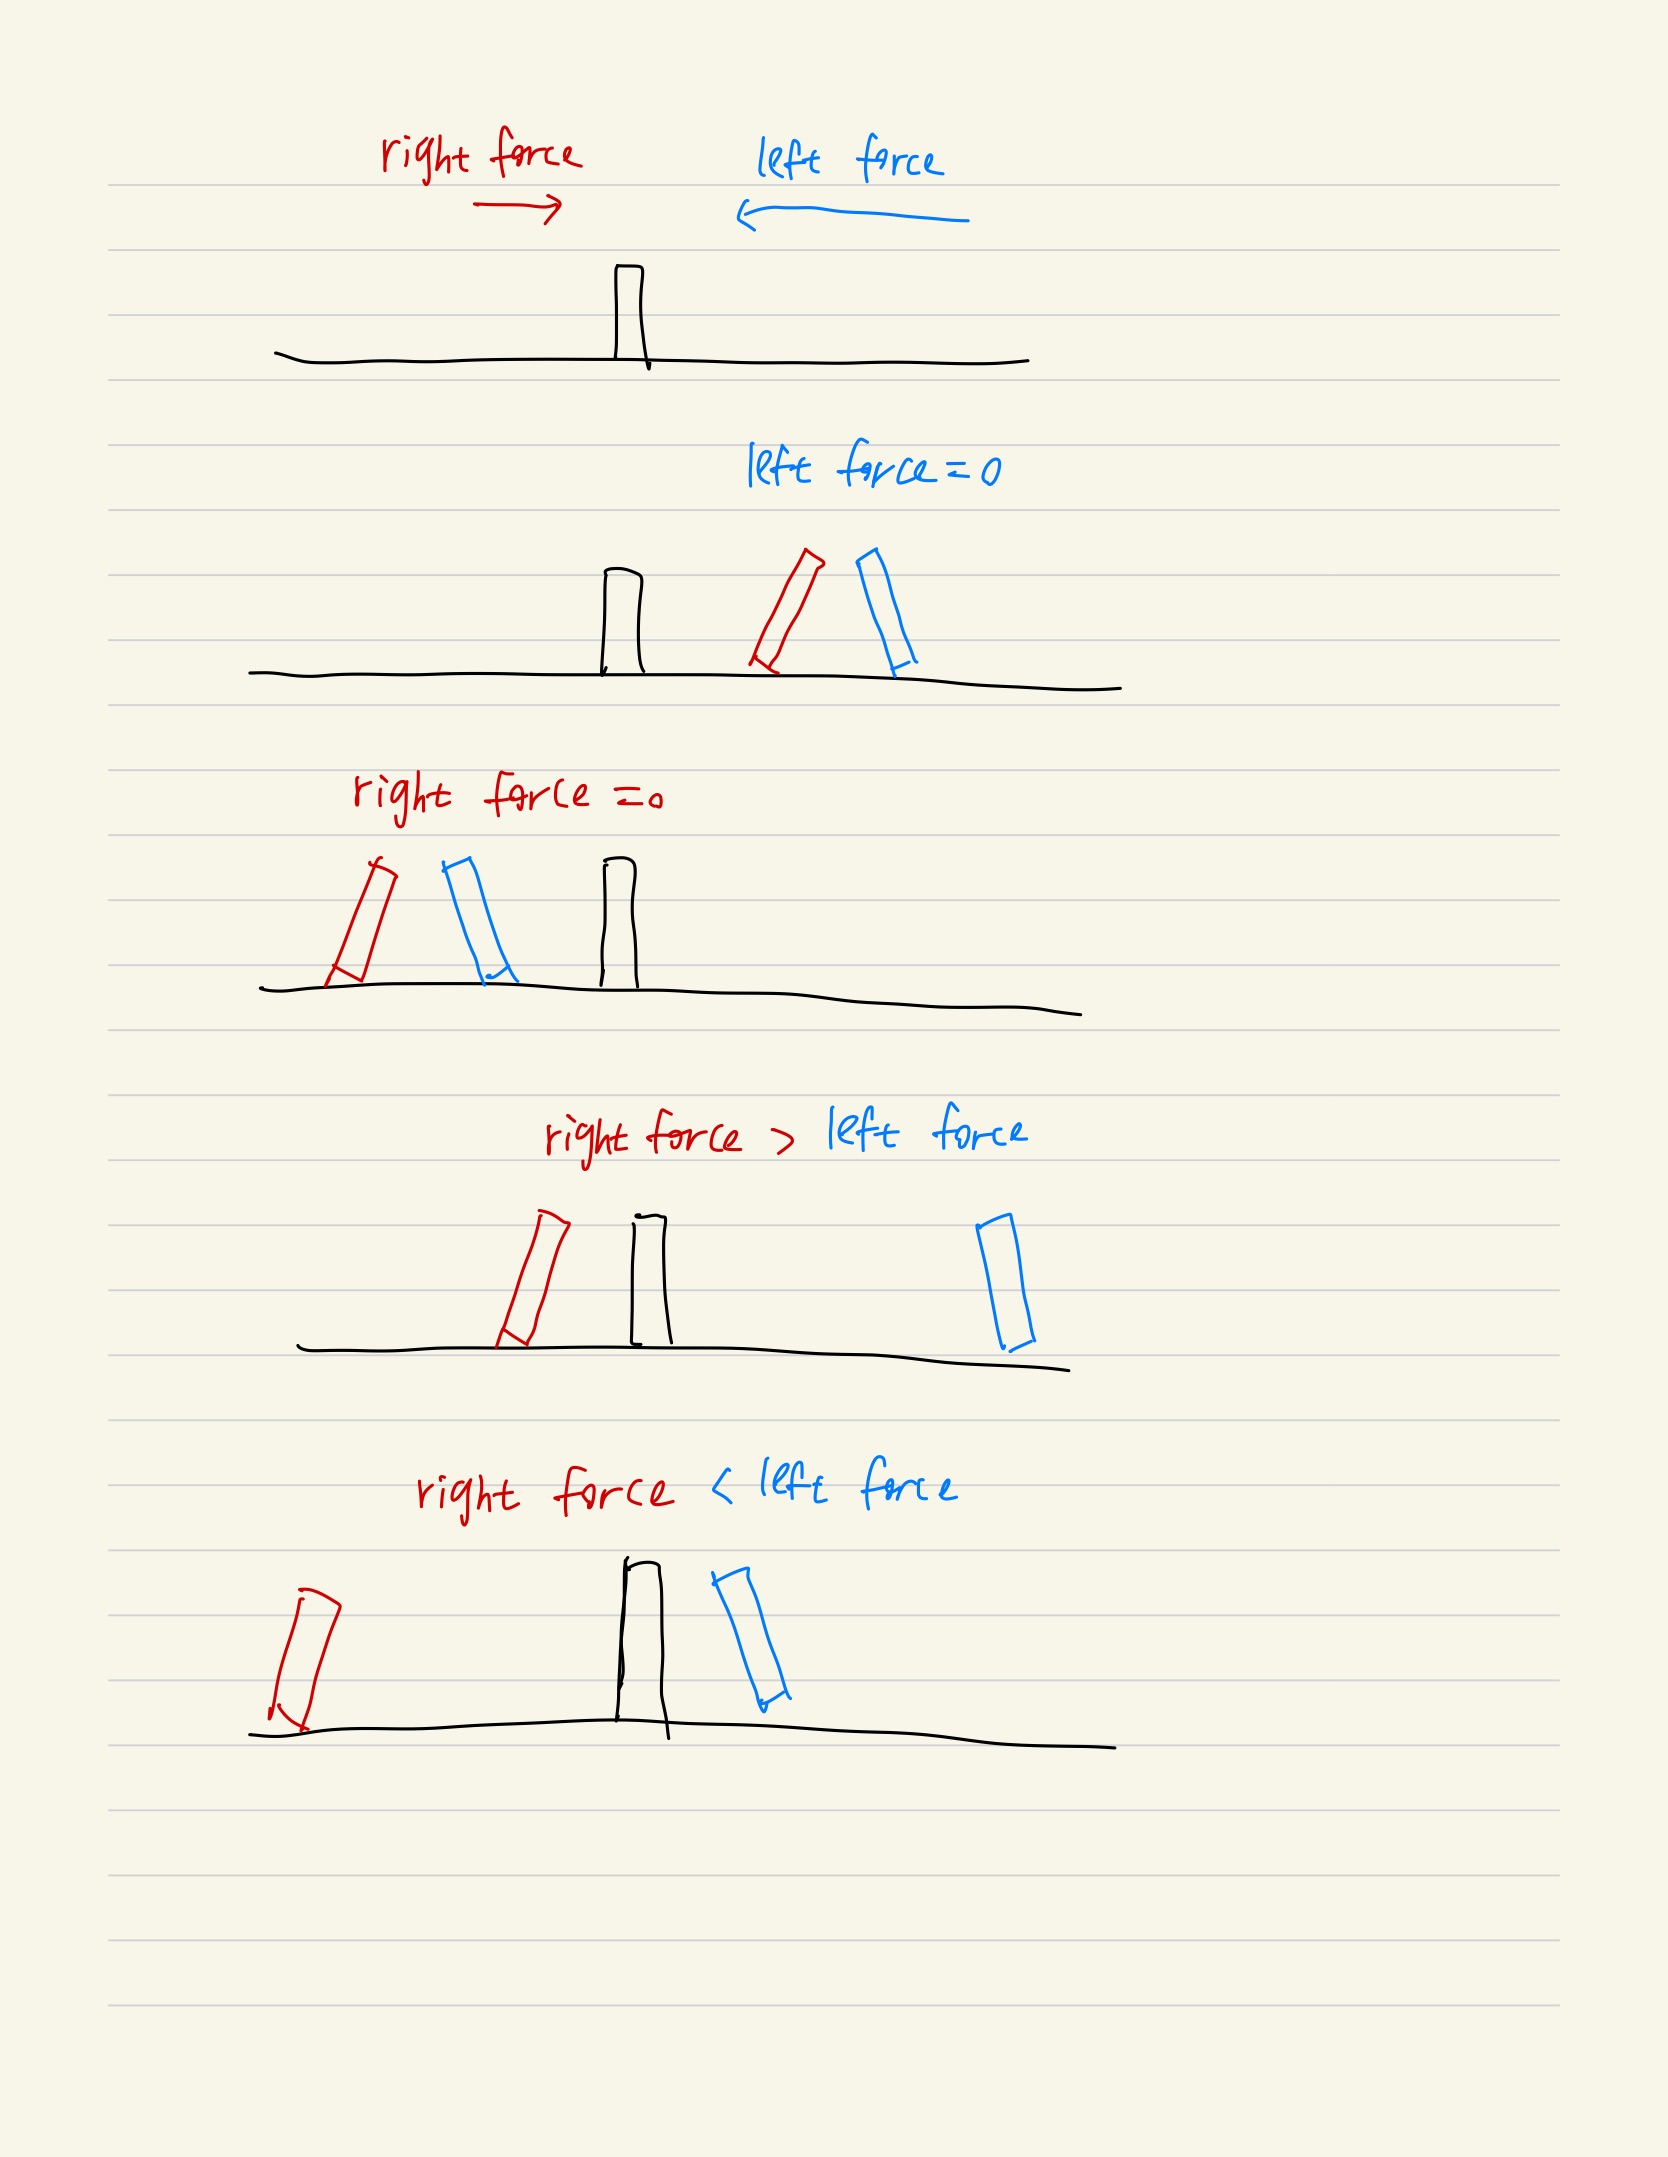 right force left force
left force = 0
right force = 0
right force > left force
right force < left force